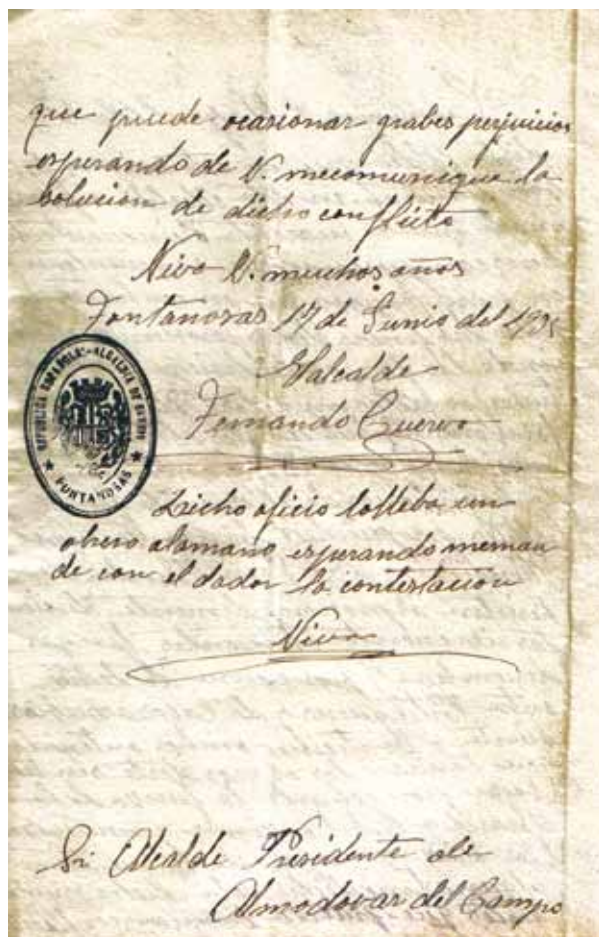 que puede ocasionar grabes perjuicios
esperando de V. mecomunique la
solucion de dicho conflicto
Viva V. muchos años
Fontanosas 17 de Junio del 193
Elalcalde
Fernando Cuervo
REPUBLICA ESPAÑOLA - ALCALDIA DE BARRIO
FONTANOSAS
Dicho oficio lolleba un
obrero alamano esperando meman
de con el dador la contestacion
Viva
Sr Alcalde Presidente de
Almodovar del Campo